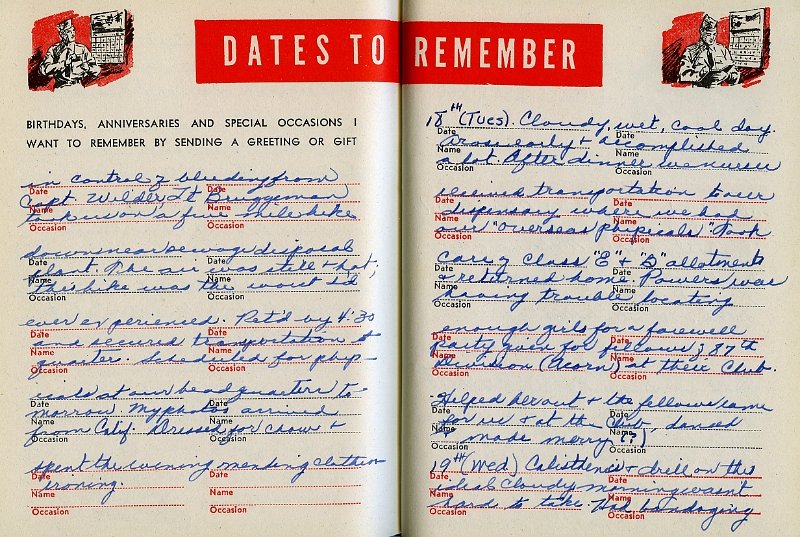 DATES TO REMEMBER
BIRTHDAYS, ANNIVERSARIES AND SPECIAL OCCASIONS I
WANT TO REMEMBER BY SENDING A GREETING OR GIFT
in control of bleeding from
Date Date
Capt. Wilder, Lt Bruggeman
Name Name
took us on a five mile hike
Occasion Occasion
down near sewage disposal
Date Date
plant. The air was still & hot,
Name Name
this hike was the worst I'd
Occasion Occasion
ever experienced. Ret'd by 4:30
Date Date
and secured transportation to
Name Name
quarters. Scheduled for phys-
Occasion Occasion
icals at our headquarters to
Date Date
morrow. My photos arrived
Name Name
from Calif. Dressed for chow &
Occasion Occasion
spent the evening mending clothes
Date Date
ironing.
Name Name
Occasion Occasion
18th (Tues). Cloudy, wet, cool day.
Date Date
Arose early & accomplished
Name Name
a lot. After dinner we nurses
Occasion Occasion
received transportation to our
Date Date
dispensary where we had
Name Name
our "overseas physicals". Took
Occasion Occasion
care of Class "E" & "D" allotments
Date Date
& returned home. Powers was
Name Name
having trouble locating
Occasion Occasion
enough girls for a farewell
Date Date
party given for fellows, 87th
Name Name
Division (Acorn) at their Club.
Occasion Occasion
Helped her out & the fellows came
Date Date
for us & at the Club, danced
Name Name
made merry (?)
Occasion Occasion
19th (Wed) Calisthenics & drill on this
Date Date
ideal cloudy morning wasn't
Name Name
hard to take. Had bandaging
Occasion Occasion